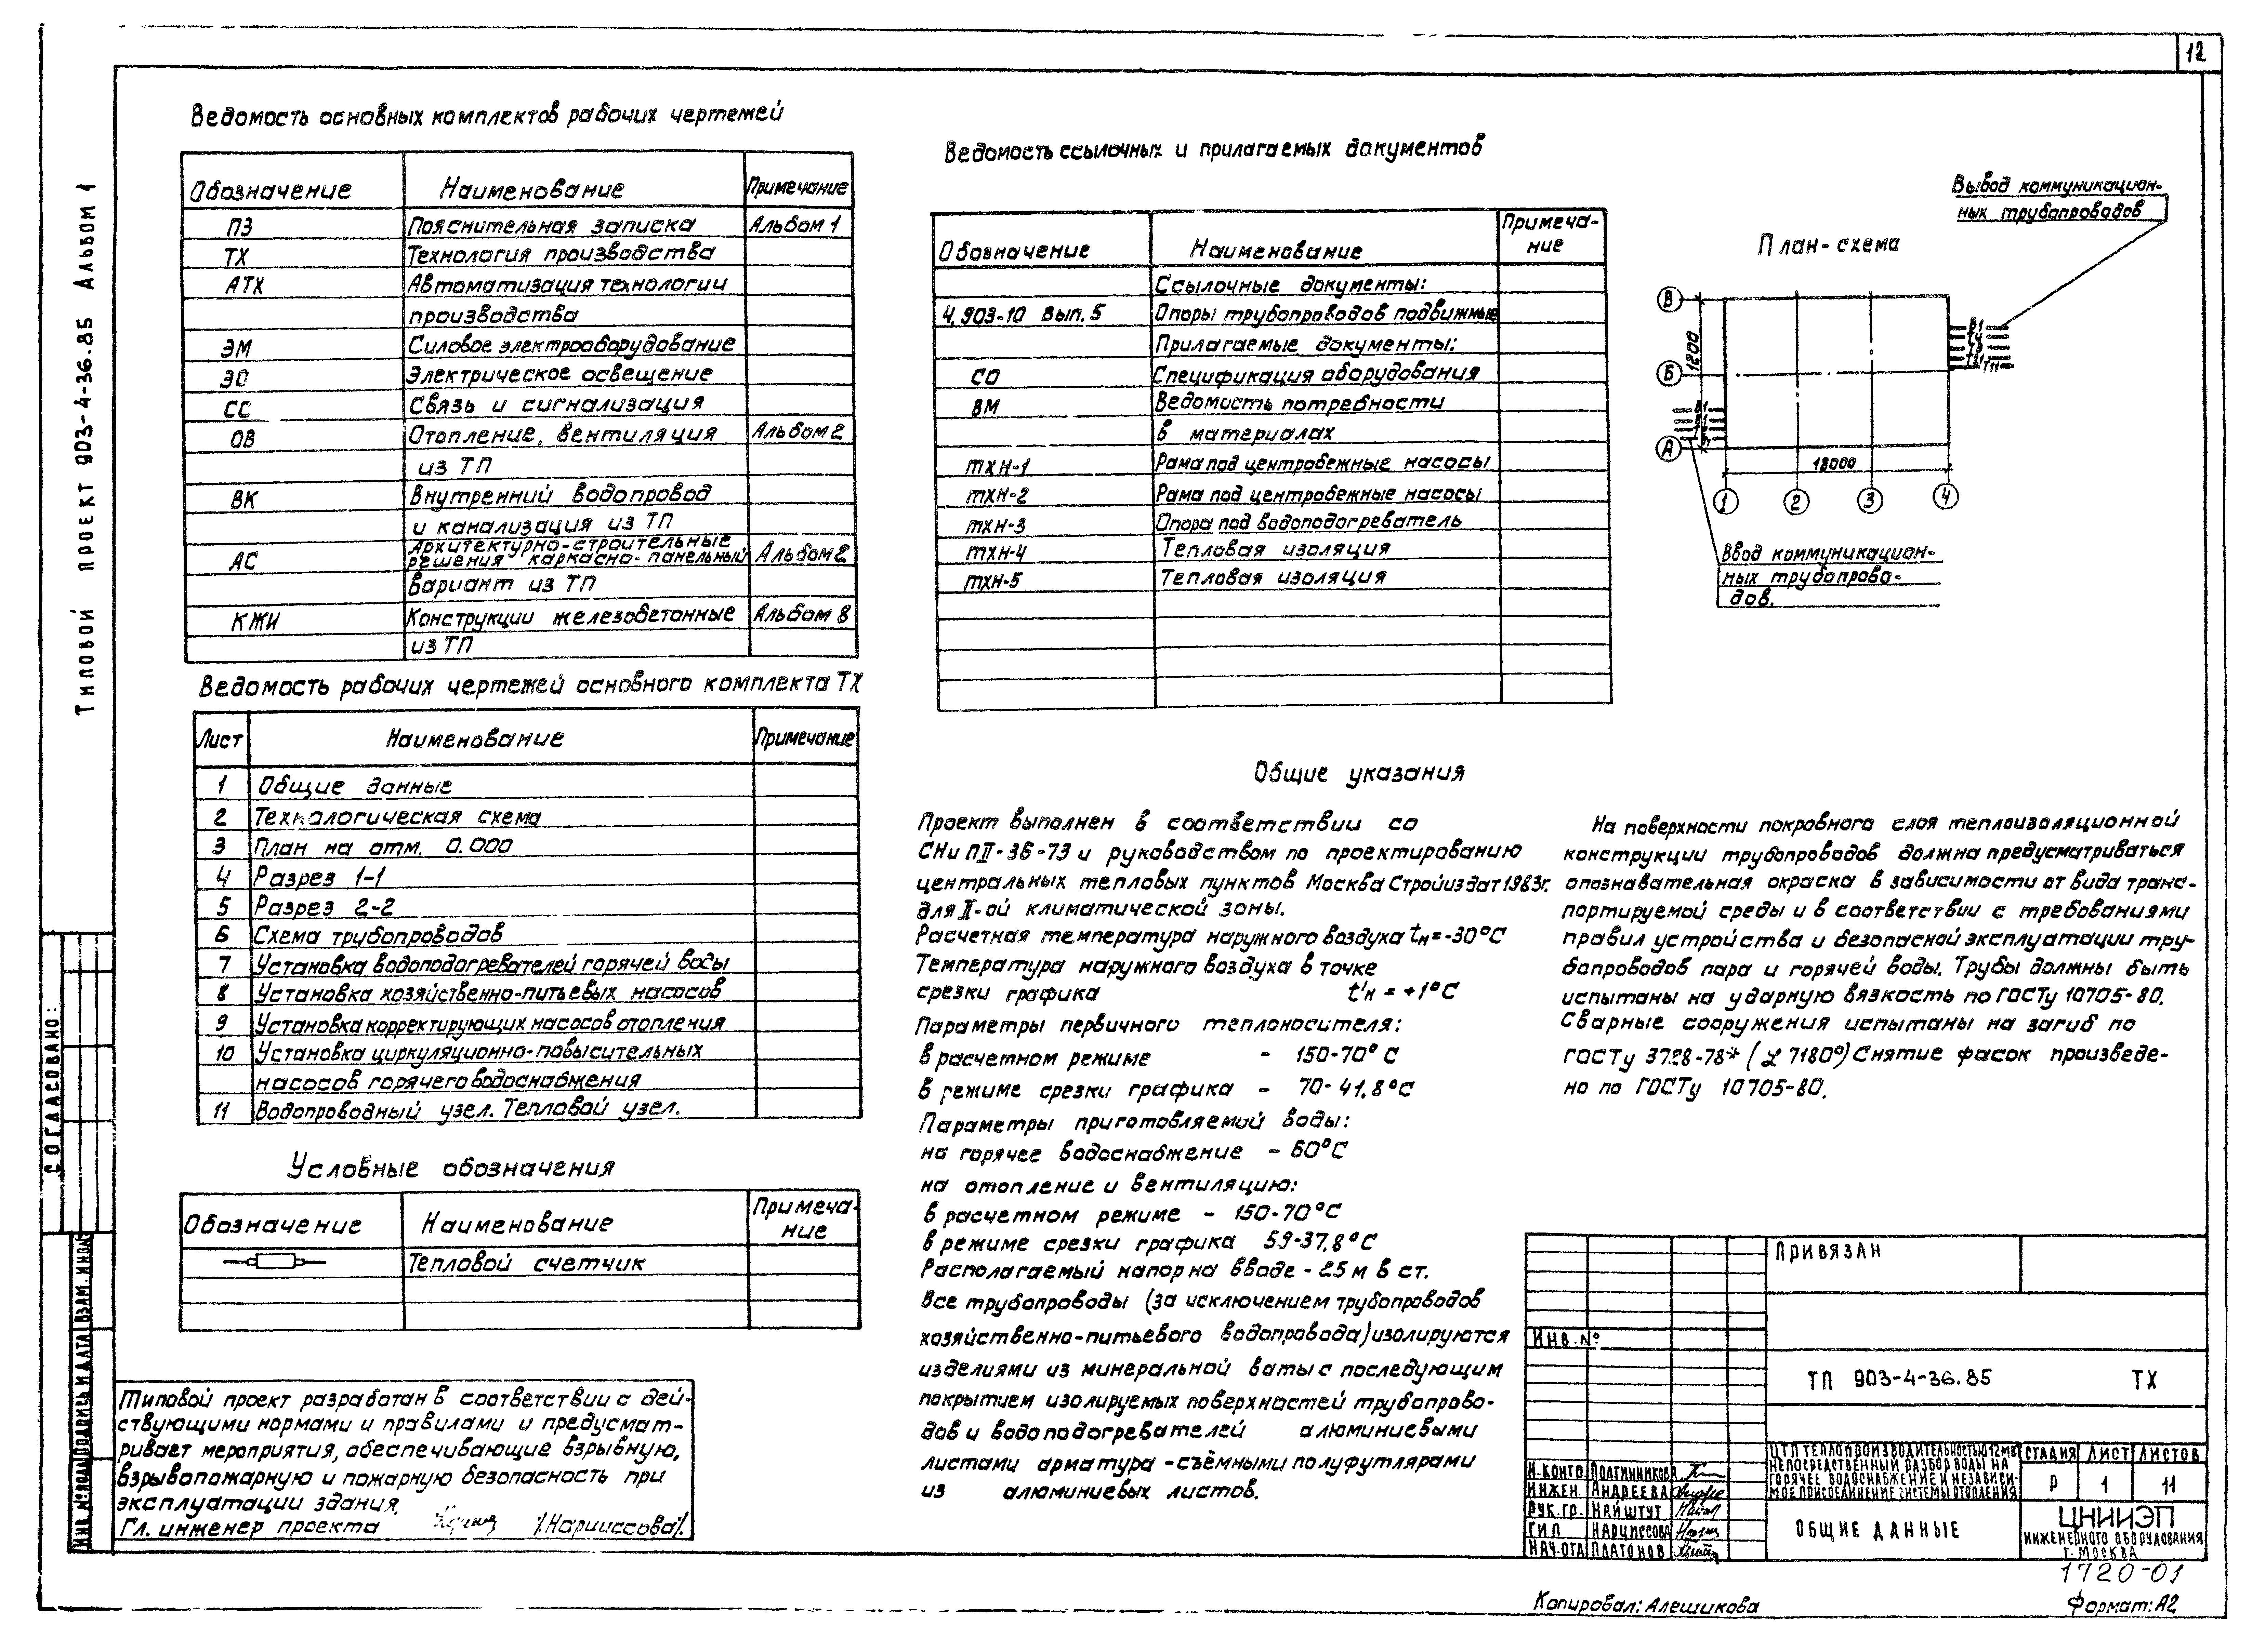 12
Типовой проект 903-4-36.85 Альбом 1
Ведомость основных комплектов рабочих чертежей
Обозначение Наименование Примечание
ПЗ Пояснительная записка Альбом 1
ТХ Технология производства
АТХ Автоматизация технологии
производства
ЭМ Силовое электрооборудование
ЭО Электрическое освещение
СС Связь и сигнализация
ОВ Отопление, вентиляция Альбом 2
из ТП
ВК Внутренний водопровод
и канализация из ТП
Архитектурно-строительные
АС решения каркасно-панельный Альбом 2
вариант из ТП
КЖИ Конструкции железобетонные Альбом 8
из ТП
Ведомость рабочих чертежей основного комплекта ТХ
Лист Наименование Примечание
1 Общие данные
2 Технологическая схема
3 План на отм. 0.000
4 Разрез 1-1
5 Разрез 2-2
6 Схема трубопроводов
7 Установка водоподогревателей горячей воды
8 Установка хозяйственно-питьевых насосов
9 Установка корректирующих насосов отопления
10 Установка циркуляционно-повысительных
насосов горячего водоснабжения
11 Водопроводный узел. Тепловой узел.
Условные обозначения
Обозначение Наименование Примеча-
ние
Тепловой счетчик
Типовой проект разработан в соответствии с дей-
ствующими нормами и правилами и предусмат-
ривает мероприятия, обеспечивающие взрывную,
взрывопожарную и пожарную безопасность при
эксплуатации здания.
Гл. инженер проекта /Нарциссова/.
Ведомость ссылочных и прилагаемых документов
Обозначение Наименование Примеча-
ние
Ссылочные документы:
4.903-10 вып. 5 Опоры трубопроводов подвижные
Прилагаемые документы:
СО Спецификация оборудования
ВМ Ведомость потребности
в материалах
ТХН-1 Рама под центробежные насосы
ТХН-2 Рама под центробежные насосы
ТХН-3 Опора под водоподогреватель
ТХН-4 Тепловая изоляция
ТХН-5 Тепловая изоляция
Вывод коммуникацион-
ных трубопроводов
План-схема
В
Б
А
1200
18000
1 2 3 4
В1
Т4
Т3
Т21
Т11
В1
Ввод коммуникацион-
ных трубопрово-
дов.
Общие указания
Проект выполнен в соответствии со
СНиП II-36-73 и руководством по проектированию
центральных тепловых пунктов Москва Стройиздат 1983г.
для II-ой климатической зоны.
Расчетная температура наружного воздуха tн=-30°С
Температура наружного воздуха в точке
срезки графика t'н = +1°С
Параметры первичного теплоносителя:
в расчетном режиме - 150-70°С
в режиме срезки графика - 70-41,8°С
Параметры приготовляемой воды:
на горячее водоснабжение - 60°С
на отопление и вентиляцию:
в расчетном режиме - 150-70°С
в режиме срезки графика 59-37,8°С
Располагаемый напор на вводе - 25 м в ст.
Все трубопроводы (за исключением трубопроводов
хозяйственно-питьевого водопровода) изолируются
изделиями из минеральной ваты с последующим
покрытием изолируемых поверхностей трубопрово-
дов и водоподогревателей алюминиевыми
листами арматура - съёмными полуфутлярами
из алюминиевых листов.
На поверхности покровного слоя теплоизоляционной
конструкции трубопроводов должна предусматриваться
опознавательная окраска в зависимости от вида транс-
портируемой среды и в соответствии с требованиями
правил устройства и безопасной эксплуатации тру-
бопроводов пара и горячей воды. Трубы должны быть
испытаны на ударную вязкость по ГОСТу 10705-80.
Сварные сооружения испытаны на загиб по
ГОСТу 3728-78* (∠ 7180°) Снятие фасок произведе-
но по ГОСТу 10705-80.
Согласовано:
Инв. № подл. Подпись и дата Взам. инв.№
Привязан
Инв. №
ТП 903-4-36.85 ТХ
ЦТП теплопроизводительностью 12 МВт
непосредственный разбор воды на
горячее водоснабжение и независи-
мое присоединение системы отопления
Стадия Лист Листов
Р 1 11
Н.контр. Полтинникова
Инжен. Андреева
Рук.гр. Найштут
ГИП Нарциссова
Нач.отд Платонов
Общие данные
ЦНИИЭП
инженерного оборудования
г. Москва
1720-01
Копировал: Алешикова
Формат: А2